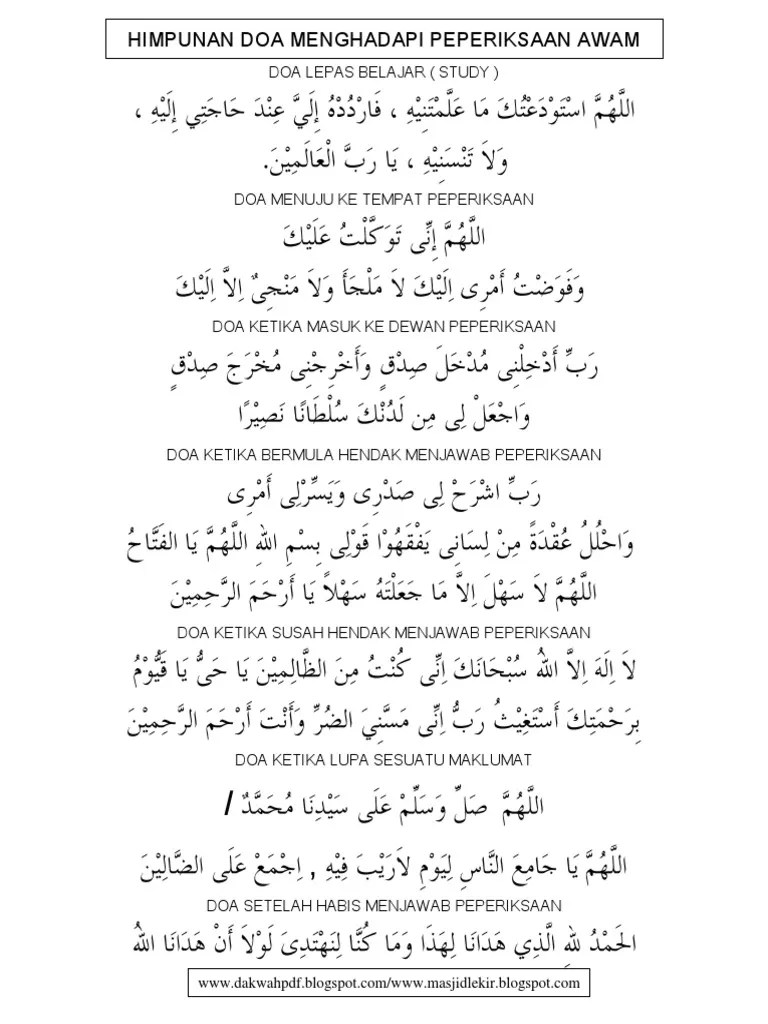 HIMPUNAN DOA MENGHADAPI PEPERIKSAAN AWAM
DOA LEPAS BELAJAR ( STUDY )
اللَّهُمَّ اسْتَوْدَعْتُكَ مَا عَلَّمْتَنِيْهِ ، فَارْدُدْهُ إِلَيَّ عِنْدَ حَاجَتِي إِلَيْهِ ،
وَلاَ تَنْسَنِيْهِ ، يَا رَبَّ الْعَالَمِيْنَ.
DOA MENUJU KE TEMPAT PEPERIKSAAN
اللَّهُمَّ إِنِّى تَوَكَّلْتُ عَلَيْكَ
وَفَوَضْتُ أَمْرِى اِلَيْكَ لاَ مَلْجَأَ وَلاَ مَنْجِىٌ اِلاَّ اِلَيْكَ
DOA KETIKA MASUK KE DEWAN PEPERIKSAAN
رَبِّ أَدْخِلْنِى مُدْخَلَ صِدْقٍ وَأَخْرِجْنِى مُخْرَجَ صِدْقٍ
وَاجْعَلْ لِى مِن لَدُنْكَ سُلْطَانًا نَصِيْرًا
DOA KETIKA BERMULA HENDAK MENJAWAB PEPERIKSAAN
رَبِّ اشْرَحْ لِى صَدْرِى وَيَسِّرْلِى أَمْرِى
وَاحْلُلْ عُقْدَةً مِنْ لِسَانِى يَفْقَهُوْا قَوْلِى بِسْمِ اللهِ اللَّهُمَّ يَا الفَتَّاحُ
اللَّهُمَّ لاَ سَهْلَ اِلاَّ مَا جَعَلْتَهُ سَهْلاً يَا أَرْحَمَ الرَّحِمِيْنَ
DOA KETIKA SUSAH HENDAK MENJAWAB PEPERIKSAAN
لاَ اِلَهَ اِلاَّ اللهُ سُبْحَانَكَ اِنِّى كُنْتُ مِنَ الظَّالِمِيْنَ يَا حَىُّ يَا قَيُّوْمُ
بِرَحْمَتِكَ أَسْتَغِيْثُ رَبُّ اِنِّى مَسَّنِيَ الضُرِّ وَأَنْتَ أَرْحَمَ الرَّحِمِيْنَ
DOA KETIKA LUPA SESUATU MAKLUMAT
اللَّهُمَّ صَلِّ وَسَلِّمْ عَلَى سَيْدِنَا مُحَمَّدٌ /
اللَّهُمَّ يَا جَامِعَ النَّاسِ لِيَوْمِ لاَرَيْبَ فِيْهِ , اِجْمَعْ عَلَى الضَّالِيْنَ
DOA SETELAH HABIS MENJAWAB PEPERIKSAAN
الحَمْدُ للهِ الَّذِي هَدَانَا لِهَذَا وَمَا كُنَّا لِنَهْتَدِىَ لَوْلاَ أَنْ هَدَانَا اللهُ
www.dakwahpdf.blogspot.com/www.masjidlekir.blogspot.com